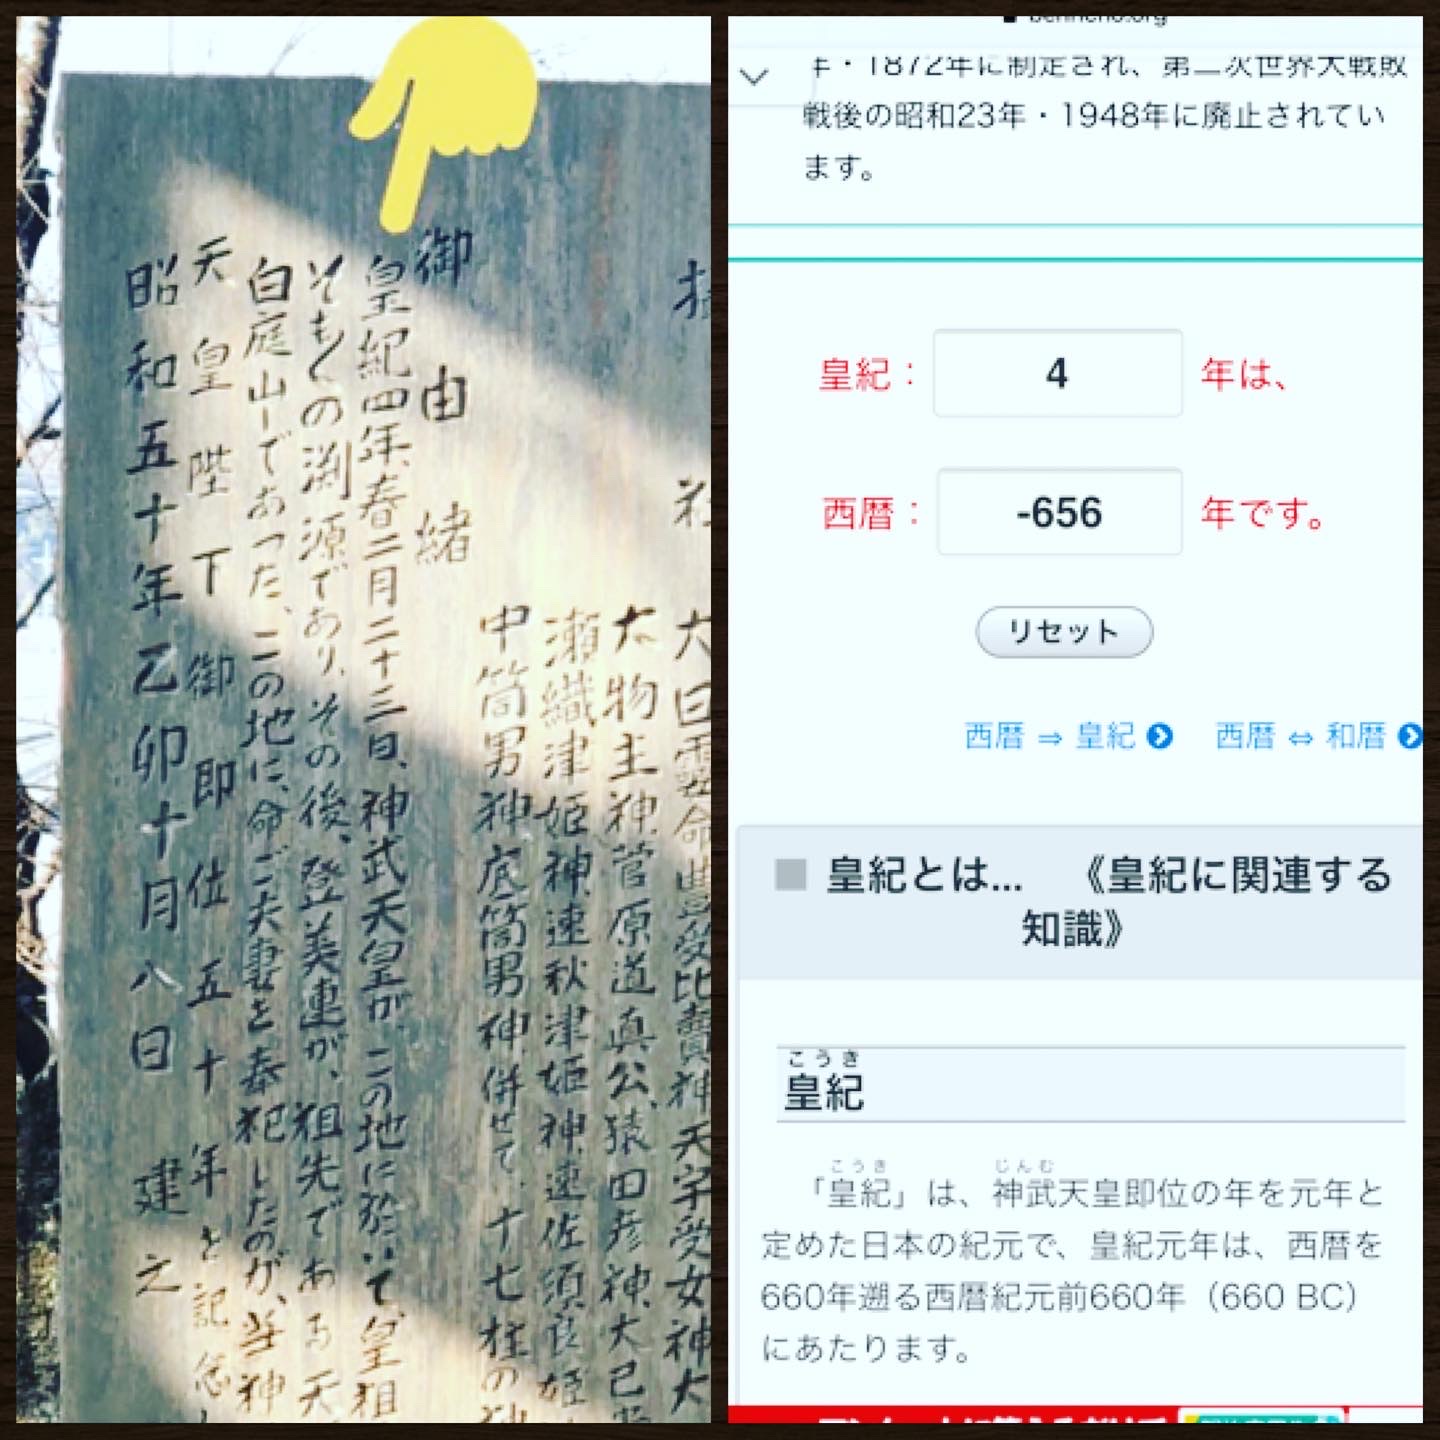 御由緒
皇紀四年、春二月二十三日、神武天皇が、この地に於いて、皇祖
そもくの渕源であり、その後、登美連が、祖先である天
白庭山であった、この地に、命ご夫妻を奉祀したのが、当神
天皇陛下御即位五十年を記念し
昭和五十年乙卯十月八日 建之
大日霊命豊受比賣神天宇受女神大
大物主神、菅原道真公、猿田彦神、大己
瀬織津姫神、速秋津姫神、速佐須良姫
中筒男神、底筒男神、併せて、十七柱の神
年・1872年に制定され、第二次世界大戦敗
戦後の昭和23年・1948年に廃止されてい
ます。
皇紀： 4 年は、
西暦： -656 年です。
リセット
西暦 ⇒ 皇紀 西暦 ⇔ 和暦
■ 皇紀とは... 《皇紀に関連する
知識》
こうき
皇紀
こうき じんむ
「皇紀」は、神武天皇即位の年を元年と
定めた日本の紀元で、皇紀元年は、西暦を
660年遡る西暦紀元前660年（660 BC）
にあたります。